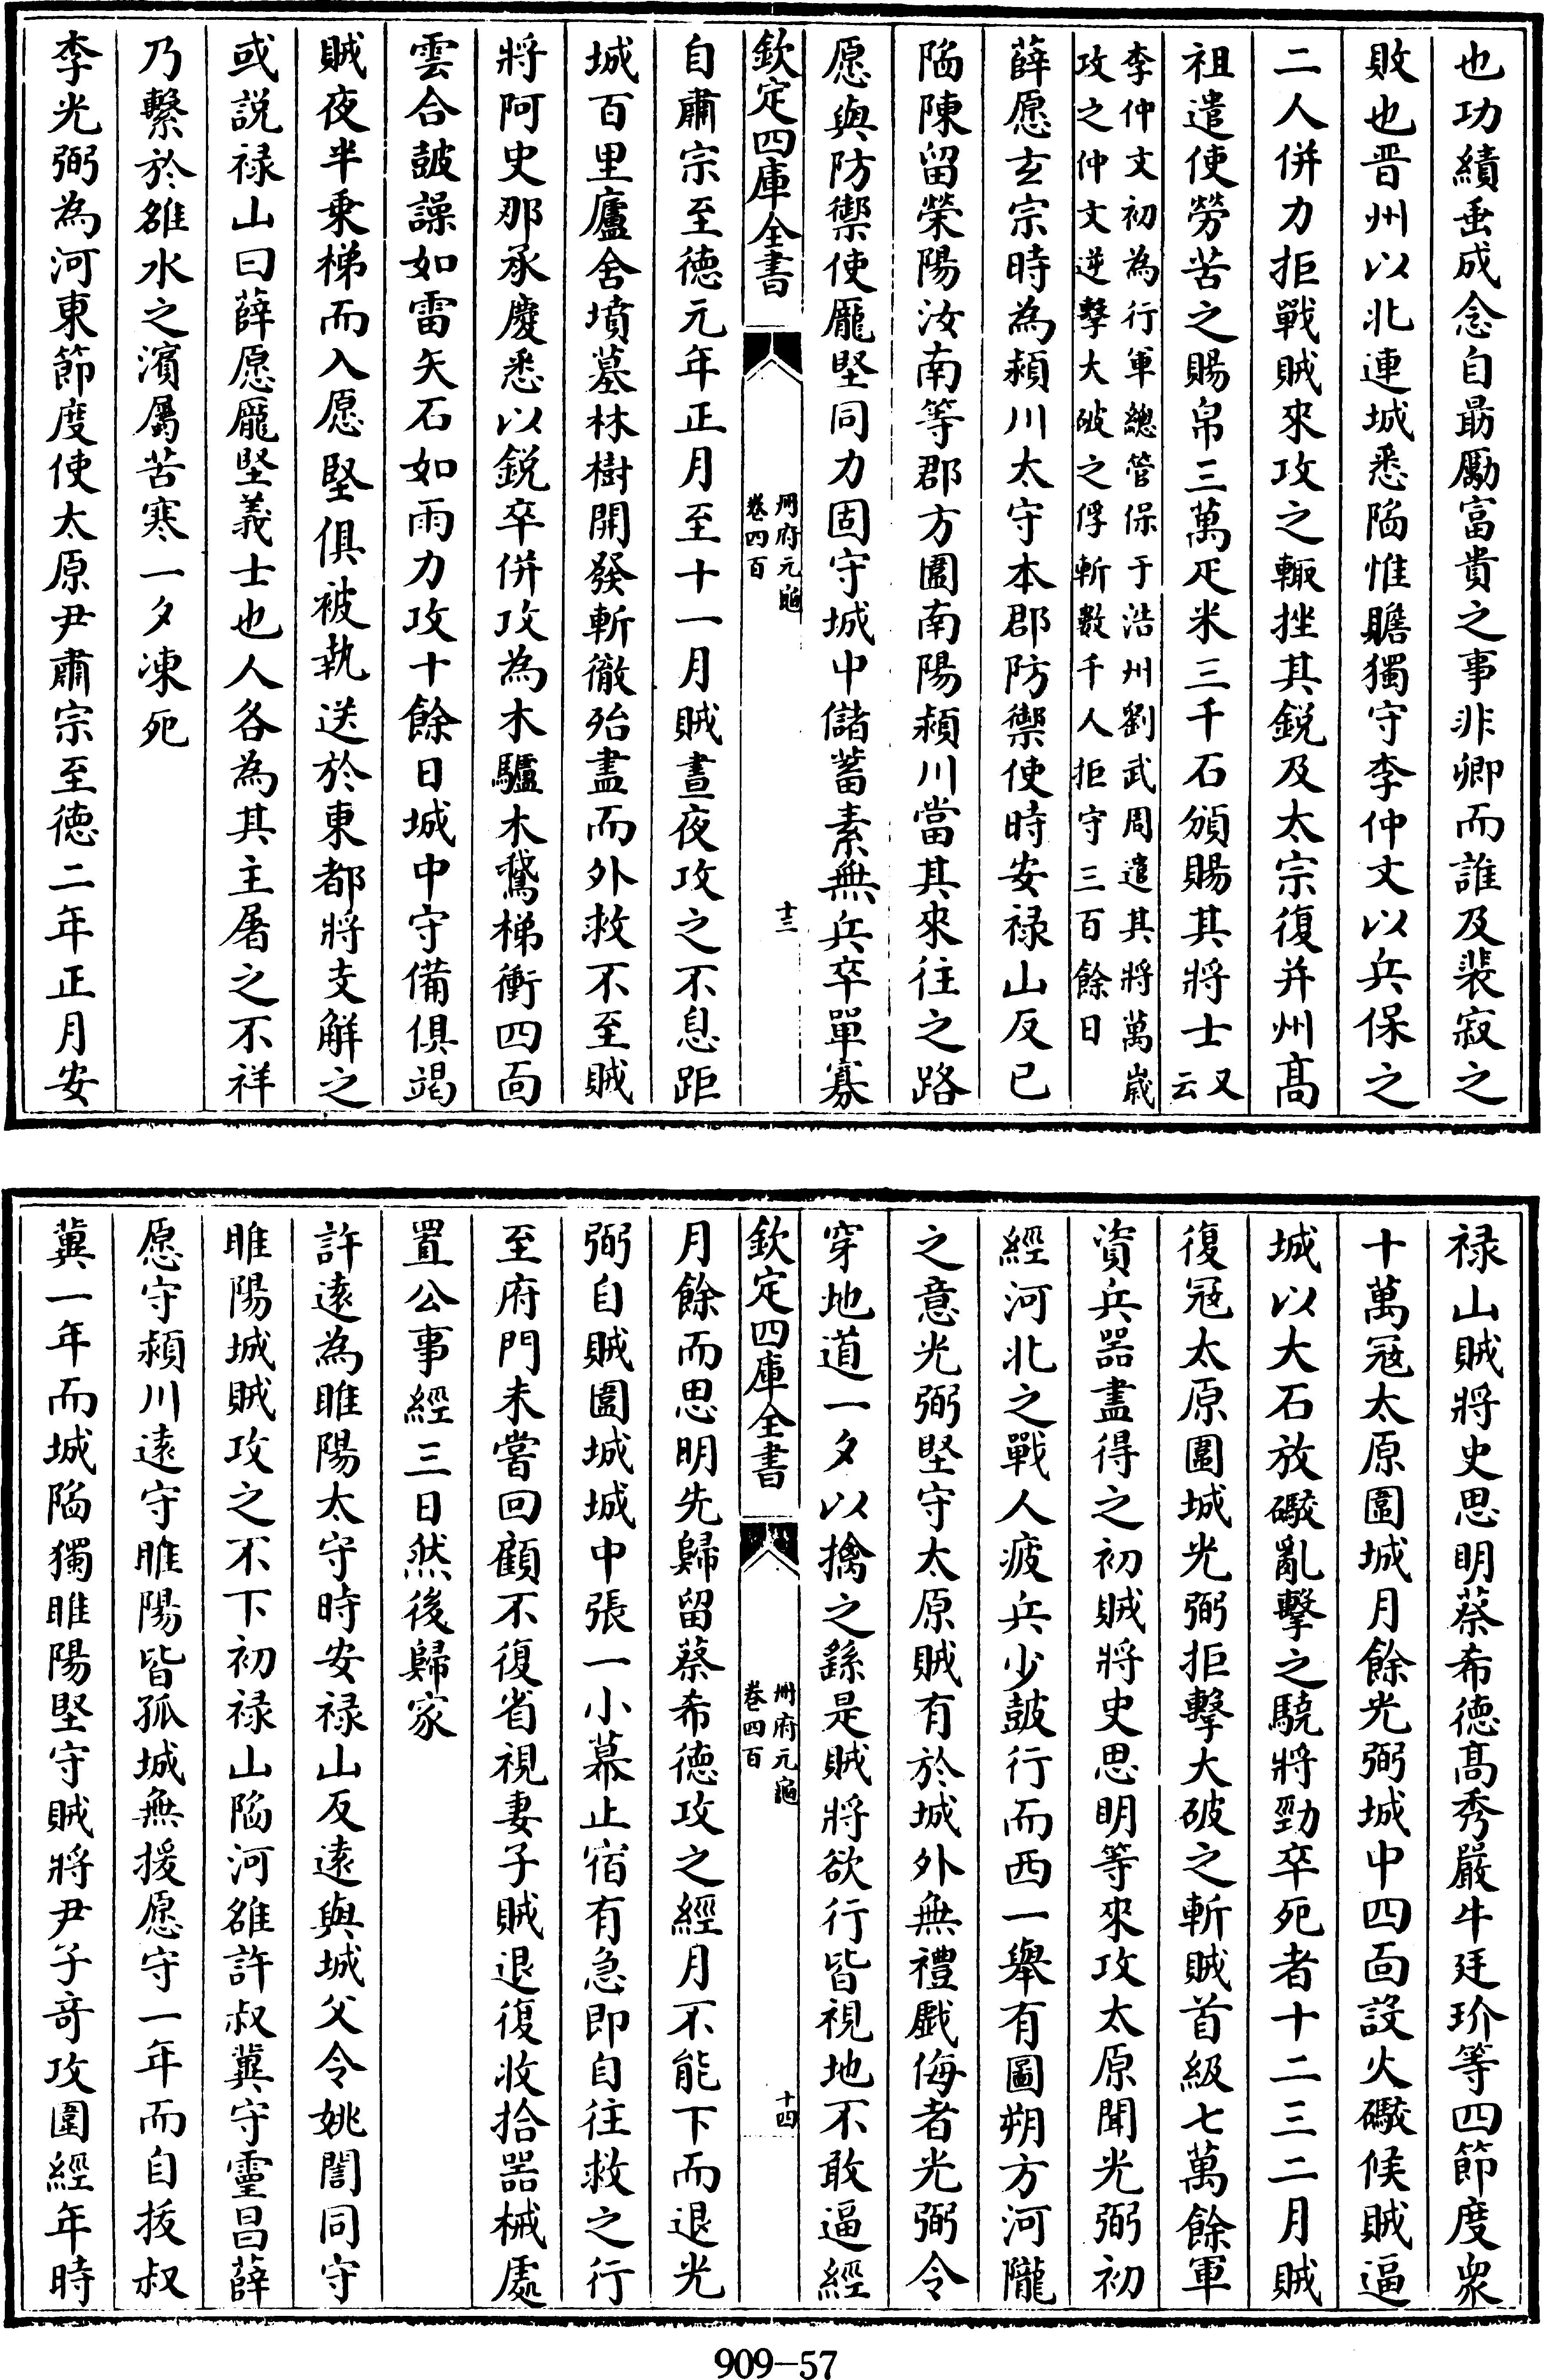 也功績垂成念自勗勵富貴之事非卿而誰及裴寂之
敗也晋州以北連城悉陷惟瞻獨守李仲文以兵保之
二人併力拒戰賊來攻之輙挫其鋭及太宗復并州髙
祖遣使勞苦之賜帛三萬疋米三千石頒賜其將士又云
李仲文初為行軍總管保于浩州劉武周遣其將萬嵗
攻之仲文逆擊大破之俘斬數千人拒守三百餘日
薛愿玄宗時為潁川太守本郡防禦使時安禄山反已
陷陳留榮陽汝南等郡方圍南陽潁川當其來往之路
愿與防禦使龎堅同力固守城中儲蓄素無兵卒單寡
欽定四庫全書
冊府元龜
卷四百
十三
自肅宗至德元年正月至十一月賊晝夜攻之不息距
城百里廬舍墳墓林樹開發斬徹殆盡而外救不至賊
將阿史那承慶悉以鋭卒併攻為木驢木鵞梯衝四面
雲合皷譟如雷矢石如雨力攻十餘日城中守備俱竭
賊夜半乗梯而入愿堅俱被執送於東都將支解之
或説禄山曰薛愿龎堅義士也人各為其主屠之不祥
乃繫於雒水之濱屬苦寒一夕凍死
李光弼為河東節度使太原尹肅宗至徳二年正月安
禄山賊將史思明蔡希德髙秀嚴牛廷玠等四節度衆
十萬冦太原圍城月餘光弼城中四面設火礮候賊逼
城以大石放礮亂擊之驍將勁卒死者十二三二月賊
復冦太原圍城光弼拒擊大破之斬賊首級七萬餘軍
資兵器盡得之初賊將史思明等來攻太原聞光弼初
經河北之戰人疲兵少皷行而西一舉有圖朔方河隴
之意光弼堅守太原賊有於城外無禮戲侮者光弼令
穿地道一夕以擒之繇是賊將欲行皆視地不敢逼經
欽定四庫全書
冊府元龜
卷四百
十四
月餘而思明先歸留蔡希德攻之經月不能下而退光
弼自賊圍城城中張一小幕止宿有急即自往救之行
至府門未嘗回顧不復省視妻子賊退復收拾器械處
置公事經三日然後歸家
許逺為睢陽太守時安禄山反逺與城父令姚誾同守
睢陽城賊攻之不下初禄山陷河雒許叔冀守靈昌薛
愿守潁川逺守睢陽皆孤城無援愿守一年而自拔叔
冀一年而城陷獨睢陽堅守賊將尹子竒攻圍經年時
909-57